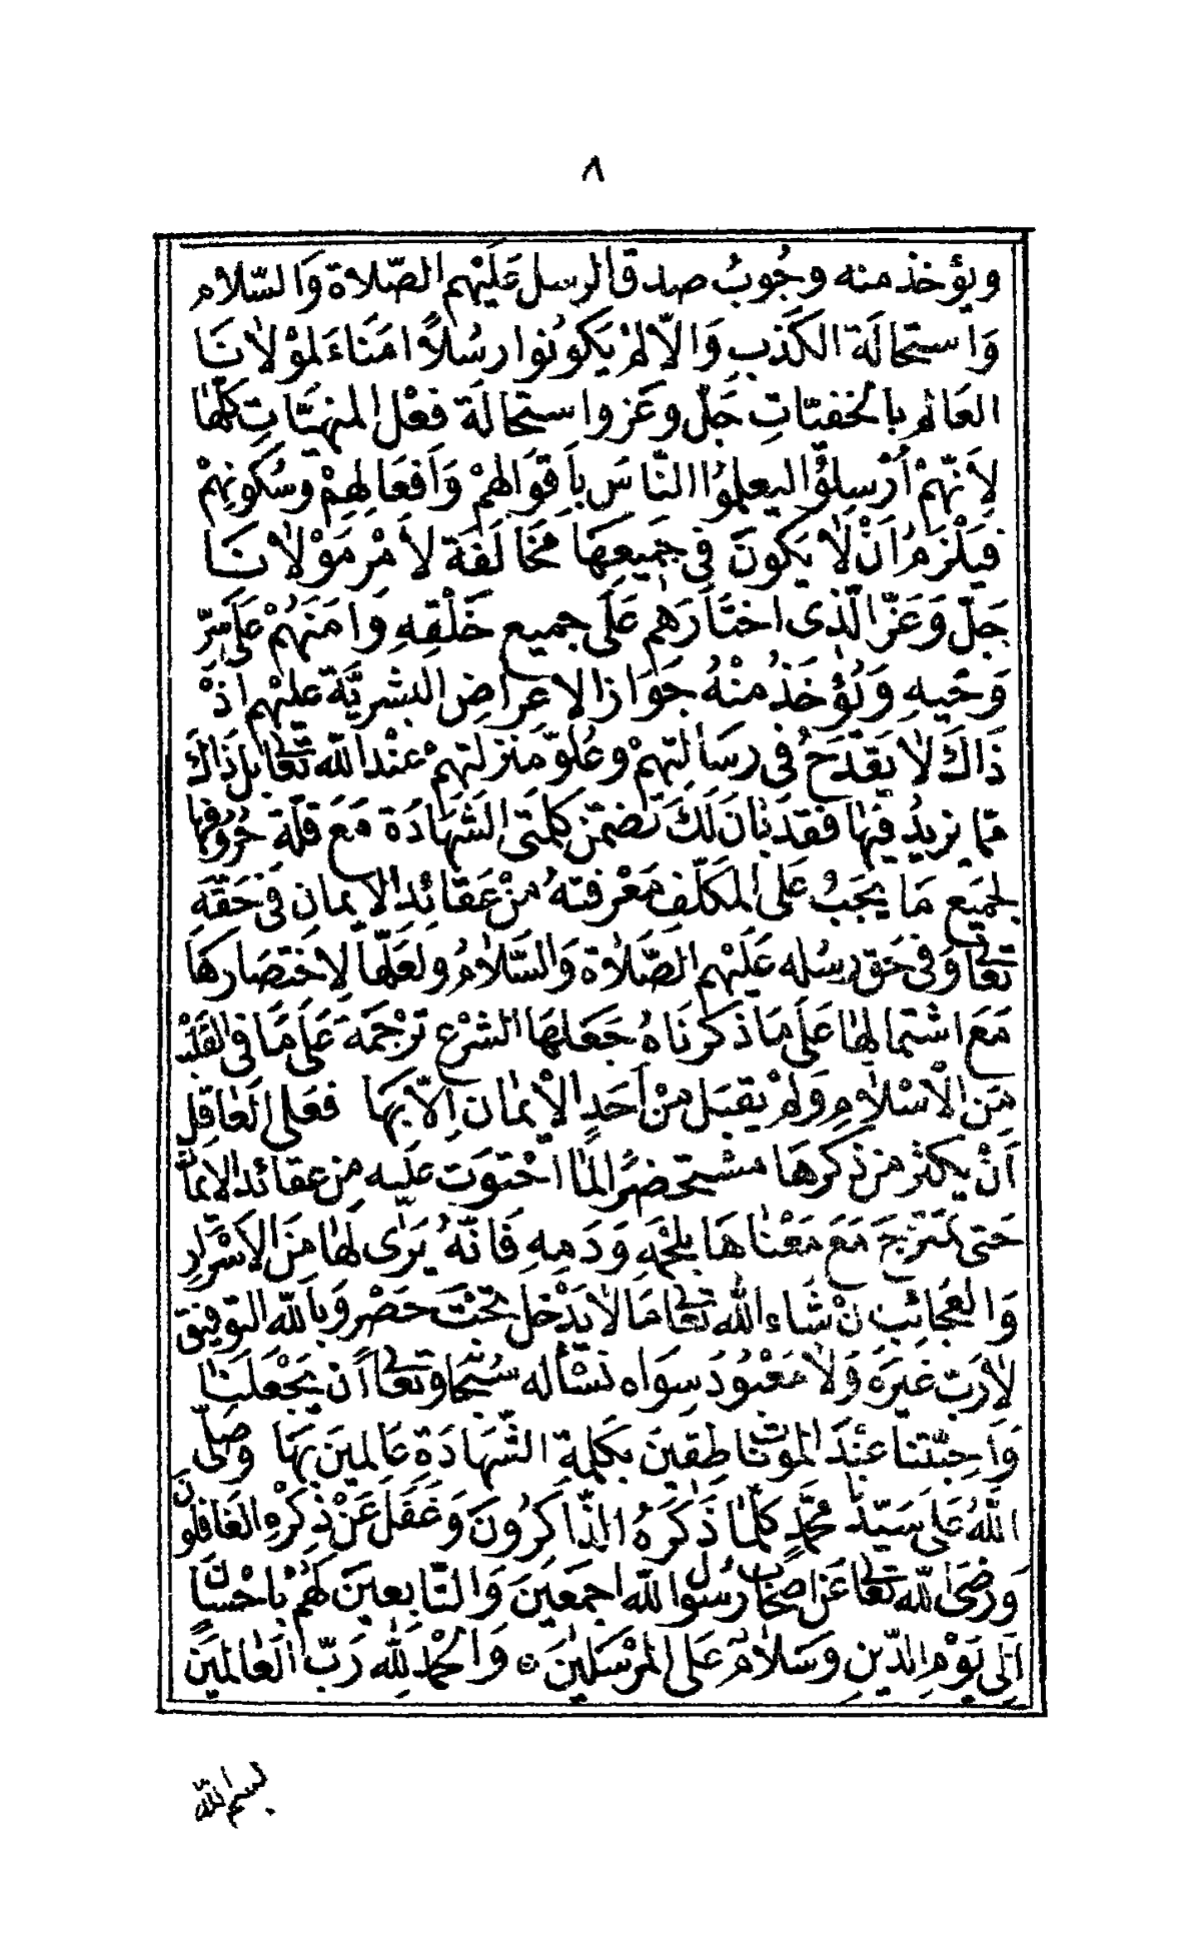 ٨
ويؤخذ منه وجُوبُ صدق الرسل عَلَيْهم الصّلاة وَالسّلام
وَاستحالَة الكَذب وَالاّ لمْ يَكونُوا رسُلاً امَنَاءَ لموْلاٰنَا
العَالم بالخفيّاتِ جَلّ وعَز واستحالَة فعْل المنهيَّاتِ كلّهَا
لِاَنّهمْ اُرْسِلُوُا ليعلموُا النّاسَ بأَقوَالهمْ وَاَفعَالهِمْ وسُكونهِمْ
فيَلْزمُ اَنْ لاٰ يَكونَ فى جَميعهَا مخَالَفَة لاَمْر مَوْلاٰنَا
جَلّ وَعَزّ الّذى اختَارَهم عَلَى جميع خَلْقهِ وَامَنَهُمْ عَلَى سِرّ
وَحْيهِ وَيُؤخَذُ منْهُ جَوَاز الاعرَاضِ البشريَّة عليْهم اذْ
ذَاكَ لاٰ يَقدَحُ فى رسَالتهمْ وعُلوّ منزلتهمْ عنْد اللّه تعَالى بل ذَاكَ
ممّا يزيدُ فيهَا فقَد بَانَ لَكَ تضمّن كلمَتى الشّهَادَة مَعَ قلّة حُرُوفهَا
لجَميَع مَا يجَبُ عَلَى المكَلّف مَعْرفتهُ منْ عَقائد الايمَانِ فى حَقّهِ
تعَالى وَفى حَق رسُله عَلَيْهم الصّلاَة وَالسَّلاٰمُ ولعَلّهاَ لاِختصَارهَا
مَعَ اشتمَالهَا عَلَى مَا ذكرنَاهُ جَعَلهَا الشرْع ترْجَمَة عَلَى مَا فى القَلْب
منَ الْاسْلاٰمِ وَلمْ يقبَل منْ اَحَدٍ الْايمَان اِلاّ بهَا فعَلى العَاقِل
اَنْ يكثر من ذكرهَا مستحضرًا لمَا احْتوَت عليه من عقائد الايمَان
حَتى تمتزجَ مَعَ مَعْنَاهَا بلحْمِهِ وَدَمِهِ فَانّهُ يَرَى لهَا منَ الاَسْرَارِ
وَالعَجَائب انْ شَاء اللّه تعَالى مَا لاٰ يَدْخل تحْتَ حَصْر وَباللّه التوفيق
لاٰ رَبّ غيَرهُ وَلاٰ مَعْبُودَ سِوَاه نسْألهُ سُبْحَانهُ وَتعَالى اَنْ يَجْعَلَنَا
وَاَحِبّتنَا عنْدَ الموْت نَاطِقينَ بكَلمةِ الشّهَادَةِ عَالمينَ بهَا وَصَلّى
اللّهُ عَلَى سَيّدنَا محَمّدٍ كلّمَا ذَكَرَهُ الذّاكرُونَ وَغَفَلَ عَنْ ذِكرْهِ الغَافلونَ
وَرَضىَ اللّه تعَالى عَن اصْحَاب رَسُول اللّه اجمَعينَ وَالتّابعينَ لهُمْ باحْسَانٍ
اِلَى يَوْمِ الدّينِ وَسَلاٰمٌ عَلى المرْسَلينَ وَالحمْدُ للّه رَبّ العَالمينَ
بسم الله